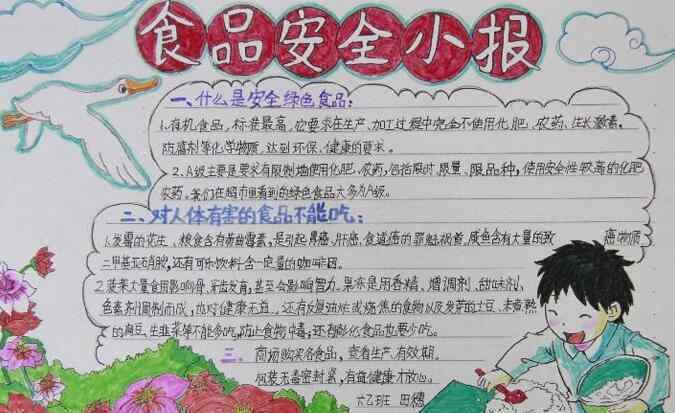 食品安全小报
一、什么是安全绿色食品:
1.有机食品,标准最高,它要求在生产、加工过程中完全不使用化肥、农药、生长激素、
防腐剂等化学物质,达到环保、健康的要求。
2、A级主要是要求有限制地使用化肥、农药,包括限时、限量、限品种,使用安全性较高的化肥
农药。我们在超市里看到的绿色食品大多为A级。
二、对人体有害的食品不能吃:
1.发霉的花生、粮食含有黄曲霉素,是引起胃癌、肝癌、食道癌的罪魁祸首,咸鱼含有大量的致 癌物质
二甲基亚硝胺,还有可乐饮料含一定量的咖啡因。
2.菠菜大量食用影响骨、牙齿发育,甚至会影响智力。果冻是用香精、增调剂、甜味剂、
色素剂调制而成,也对健康无益,还有反复油炸或烧焦的食物以及发芽的土豆、未煮熟
的扁豆、生韭菜等不能多吃,防止食物中毒,还有膨化食品也要少吃。
三、商场购买各食品,查看生产、有效期。
包装无毒密封紧,有益健康才放心。
六乙班 田穗